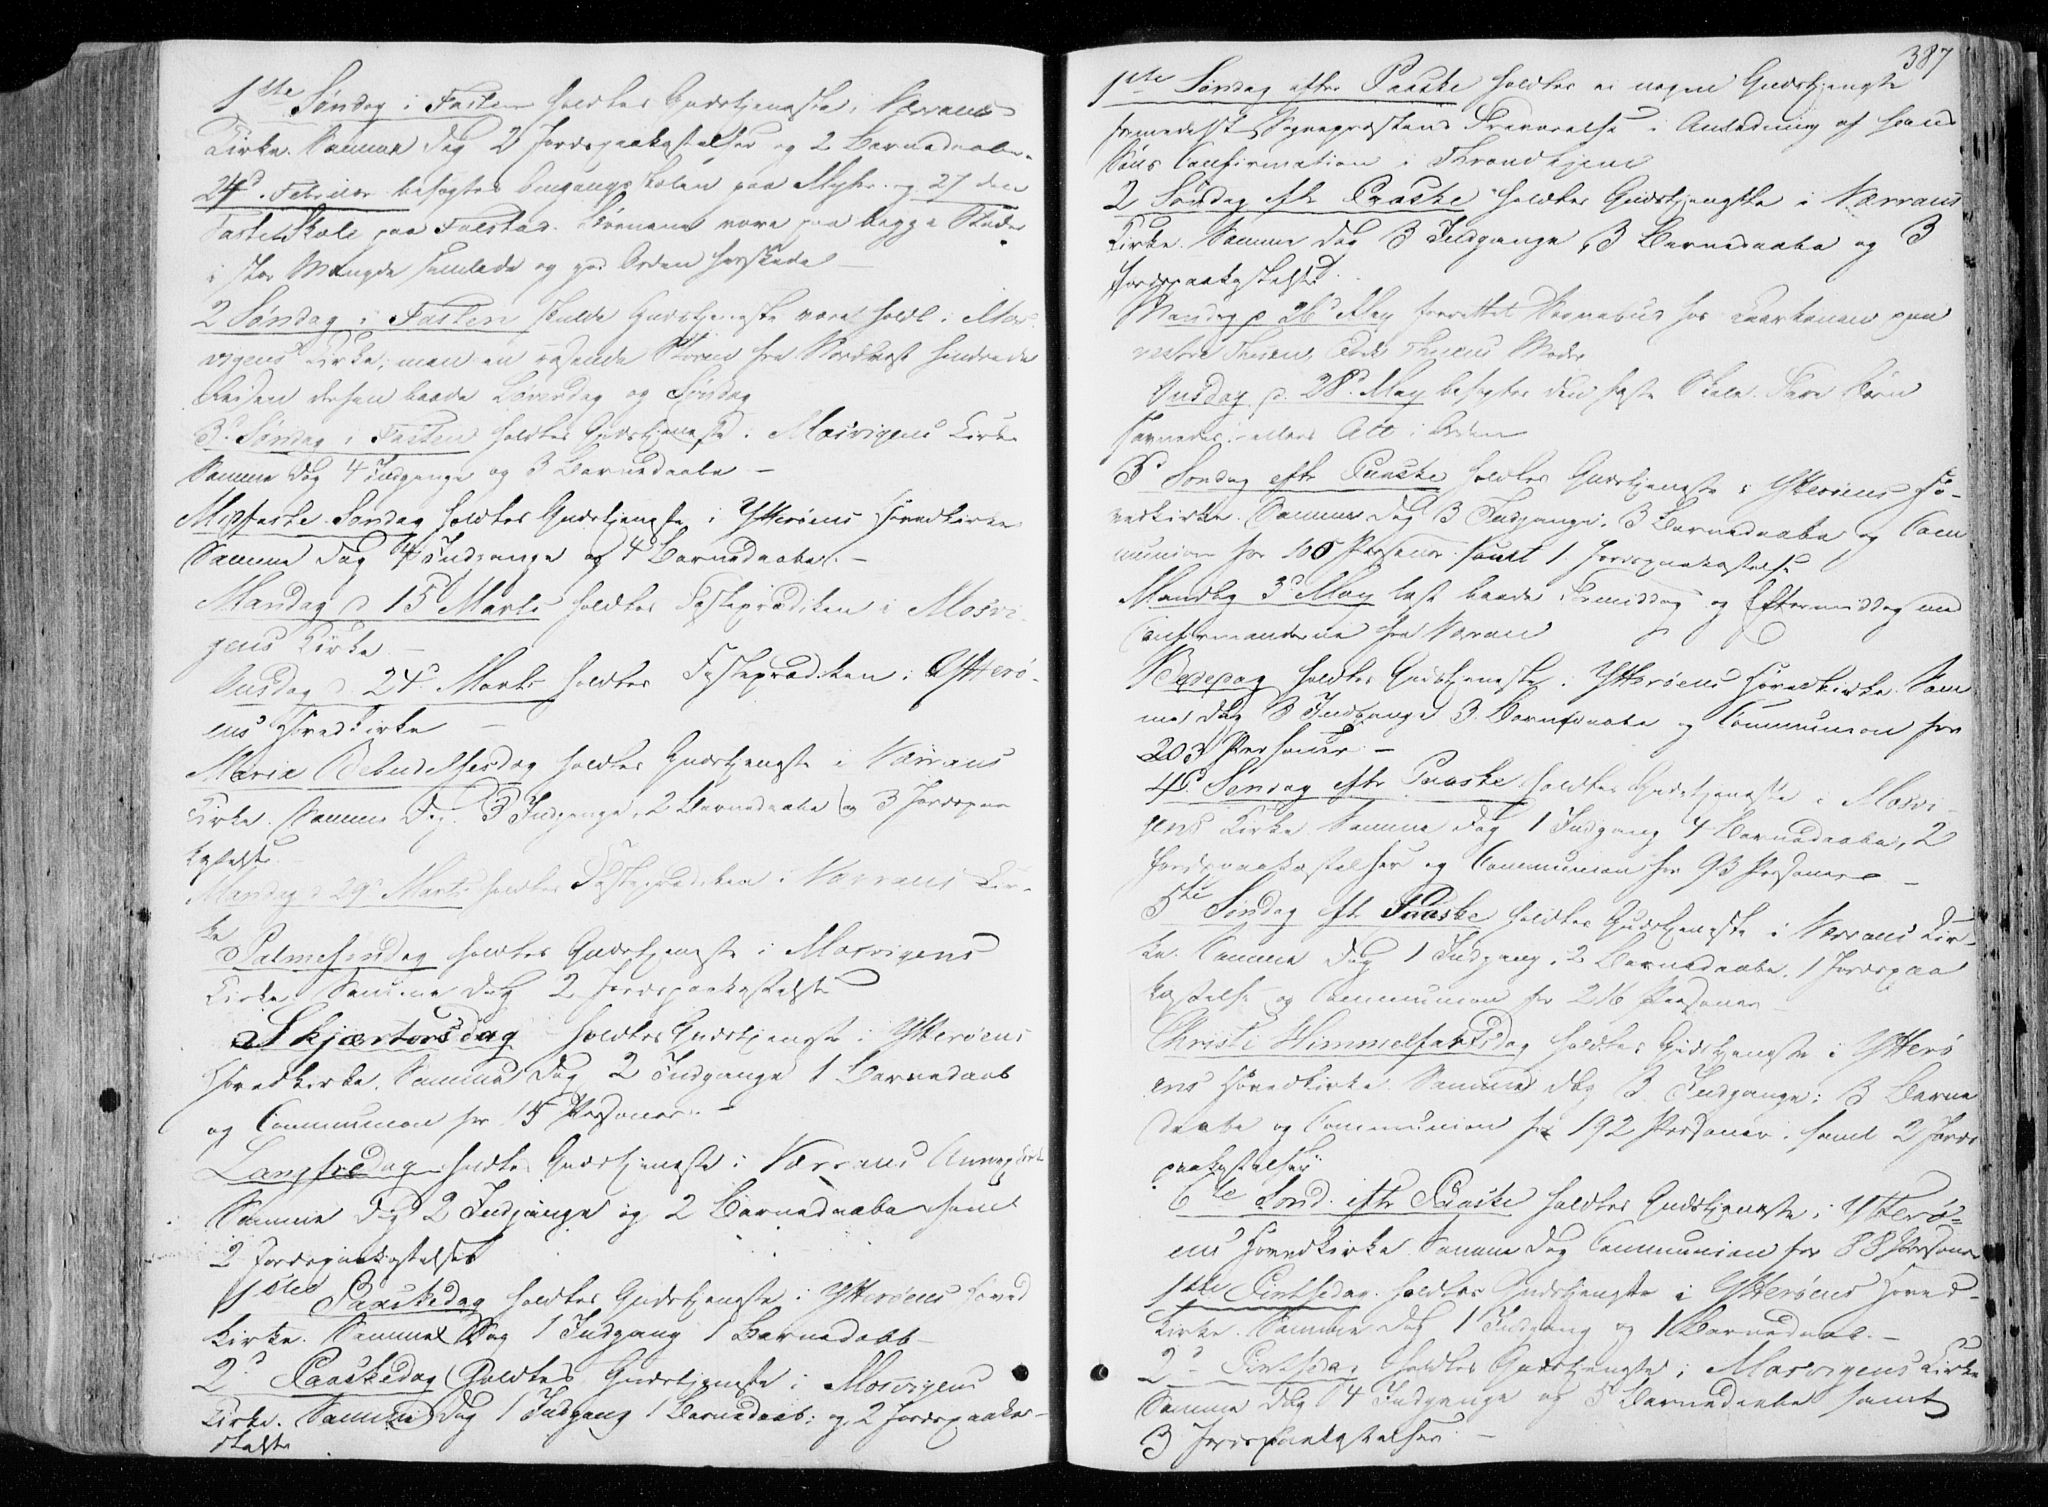 1ste Søndag i Fasten holdtes Gudstjeneste i Værrans
Kirke. Samme Dag 2 Jordspaakastelser og 2 Barnedaabe.
24d Februar besøgtes Omgangsskolen paa Myhr og 27 den
faste Skole paa Falstad. Børnene vare paa begge Steder
i stor Mængde samlede og god Orden herskede
2 Søndag i Fasten skulde Gudstjeneste været holdt i Mos-
vigens Kirke; men en rasende Storm fra Nordvest hindrede
Reisen dersen baade Løverdag og Søndag
3d Søndag i Fasten holdtes Gudstjeneste i Mosvigens Kirke
Samme Dag 4 Indgange og 3 Barnedaabe –
Midfaste Søndag holdtes Gudstjeneste i Ytterøens Hovedkirke
Samme Dag 4 Indgange og 4 Barnedaabe. –
Mandag d 15d Marts holdtes Fasteprædiken i Mosvi-
gens Kirke –
Onsdag d 24d Marts holdtes Fasteprædiken i Ytterø-
ens Hovedkirke –
Maria Bebudelsesdag holdtes Gudstjeneste i Værrans
Kirke. Samme Dag 3 Indgange, 2 Barnedaabe og 3 Jordspaa
kastelse
Mandag d 29d Marts holdtes Fasteprædiken i Værrans Kir-
ke
Palmesøndag holdtes Gudstjeneste i Mosvigens
Kirke. Samme Dag 2 Jordspaakastelse
Skjærtorsdag holdtes Gudstjeneste i Ytterøens
Hovedkirke. Samme Dag 2 Indgange 1 Barnedaab
og Communion for 15 Personer. –
Langfredag holdtes Gudstjeneste i Værrans Annexkirke
Samme Dag 2 Indgange og 2 Barnedaabe samt
2 Jordspaakastelser
1ste Paaskedag holdtes Gudstjeneste i Ytterøens Hoved
kirke. Samme Dag 1 Indgang 1 Barnedaab –
2d Paaskedag holdtes Gudstjeneste i Mosvigens
Kirke. Samme Dag 1 Indgang 1 Barnedaab; og 2 Jordspaaka-
stelse
387
1ste Søndag efter Paaske holdtes ei nogen Gudstjeneste
formedelst Sognepræstens Fraværelse i Anledning af hans
Søns Confirmation i Throndhjem
2 Søndag eftr Paaske holdtes Gudstjeneste i Værrans
Kirke. Samme Dag 3 Indgange, 3 Barnedaabe og 3
Jordspaakastelser.
Mandag d 26d forrettet Sognebud hos Kaarkonen paa
vestre Moder
Onsdag d. 28d besøgtes den faste Skole. Børn
savnedes; ellers Alt i Orden
3d Søndag eftr Paaske holdtes Gudstjeneste i Ytterøens Ho-
vedkirke. Samme Dag 3 Indgange, 3 Barnedaabe og Com
munion for 105 Personer samt 1 Jordspaakastelse
Mandag 3d May læst baade Formiddag og Eftermiddag med
Confirmanderne fra Værran
Bededag holdtes Gudstjeneste i Ytterøens Hovedkirke. Sam
me Dag 3 Indgange 3 Barnedaabe og Communion for
203 Personer. –
4d Søndag eftr Paaske holdtes Gudstjeneste i Mosvi-
gens Kirke Samme Dag 1 Indgang 4 Barnedaabe, 2
Jordspaakastelser og Communion for 93 Personer –
5te Søndag eftr Paaske holdtes Gudstjeneste i Værrans Kir-
ke. Samme Dag 1 Indgang, 2 Barnedaabe, 1 Jordspaa
kastelse og Communion for 216 Personer
Christi Himmelfartsdag holdtes Gudstjeneste i Ytterø
ens Hovedkirke. Samme Dag 3 Indgange; 3 Barne
daabe og Communion for 192 Personer, samt 2 Jords
paakastelser
6te Sønd. eftr Paaske holdtes Gudstjeneste i Ytterø-
ens Hovedkirke. Samme Dag Communion for 88 Personer
1ste Pintsedag holdtes Gudstjeneste i Ytterøens Hoved-
kirke. Samme Dag 1 Indgang og 1 Barnedaab. –
2d Pintsedag holdtes Gudstjeneste i Mosvigens Kirke
Samme Dag 4 Indgange og 5 Barnedaabe samt
3 Jordspaakastelser –